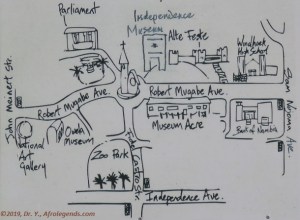 Parliament
Independence
Museum
Alte Feste
Windhoek
High School
John Meinert Str.
Robert Mugabe Ave.
Robert Mugabe Ave.
Sam Nujoma Ave.
National
Art
Gallery
Owela
Museum
Museum Acre
Bank of Namibia
Zoo Park
Fidel Castro Str.
Independence Ave.
©2019, Dr. Y., Afrolegends.com